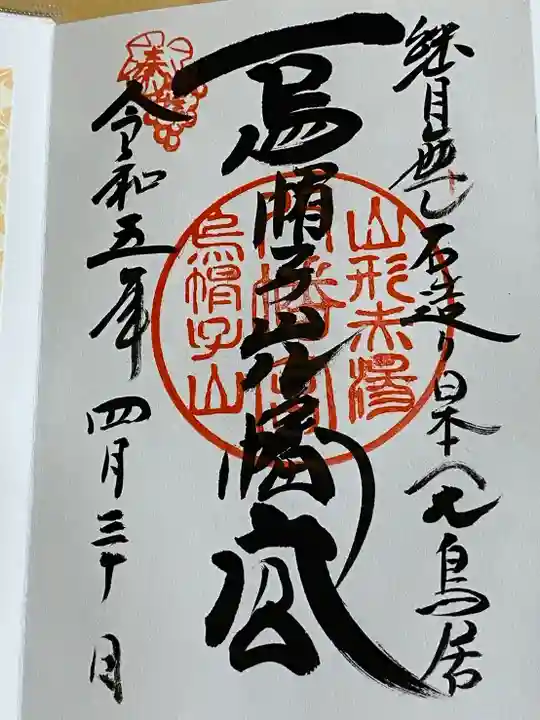 継目無し石造り日本一ノ大鳥居
烏帽子山八幡宮
山形赤湯
八幡宮
烏帽子山
奉拝
令和五年四月三十日